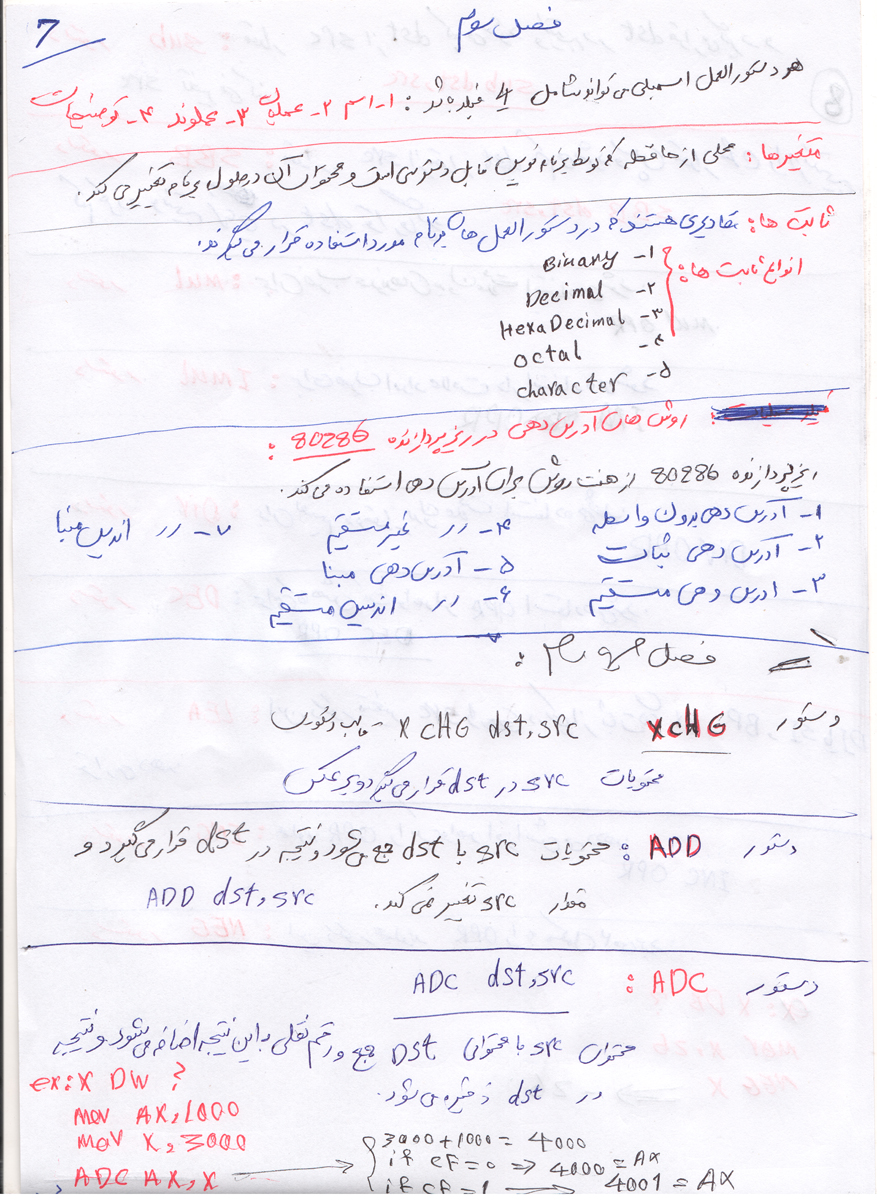 فصل سوم
7
هر دستورالعمل اسمبلی می تواند شامل 4 فیلد باشد : ۱- اسم ۲- عملیات ۳- عملوند ۴- توضیحات
متغیرها : محلی از حافظه که توسط برنامه نویس قابل دسترسی است و محتوای آن در طول برنامه تغییر می کند.
ثابت ها : مقادیری هستند که در دستورالعمل های برنامه مورد استفاده قرار می گیرند.
انواع ثابت ها :
۱- Binary
۲- Decimal
۳- HexaDecimal
۴- octal
۵- character
روش های آدرس دهی در ریزپردازنده 80286 :
ریزپردازنده 80286 از هفت روش برای آدرس دهی استفاده می کند.
۱- آدرس دهی بدون واسطه
۲- آدرس دهی ثبات
۳- آدرس دهی مستقیم
۴- رر غیر مستقیم
۵- آدرس دهی مبنا
۶- رر اندیس مستقیم
۷- رر اندیس مبنا
فصل چهارم :
دستور XCHG قالب دستوری - XCHG dst,src
محتویات src در dst قرار می گیرد و برعکس
دستور ADD : محتویات src با dst جمع می شود و نتیجه در dst قرار می گیرد و
مقدار src تغییر نمی کند. ADD dst,src
دستور ADC : ADC dst,src
محتوای src با محتوای Dst جمع و رقم نقلی به این نتیجه اضافه می شود و نتیجه
در dst ذخیره می شود.
ex: X DW ?
mov AX,1000
mov X,3000
ADC AX,X
3000+1000=4000
if cf=0 => 4000=AX
if cf=1 → 4001=AX